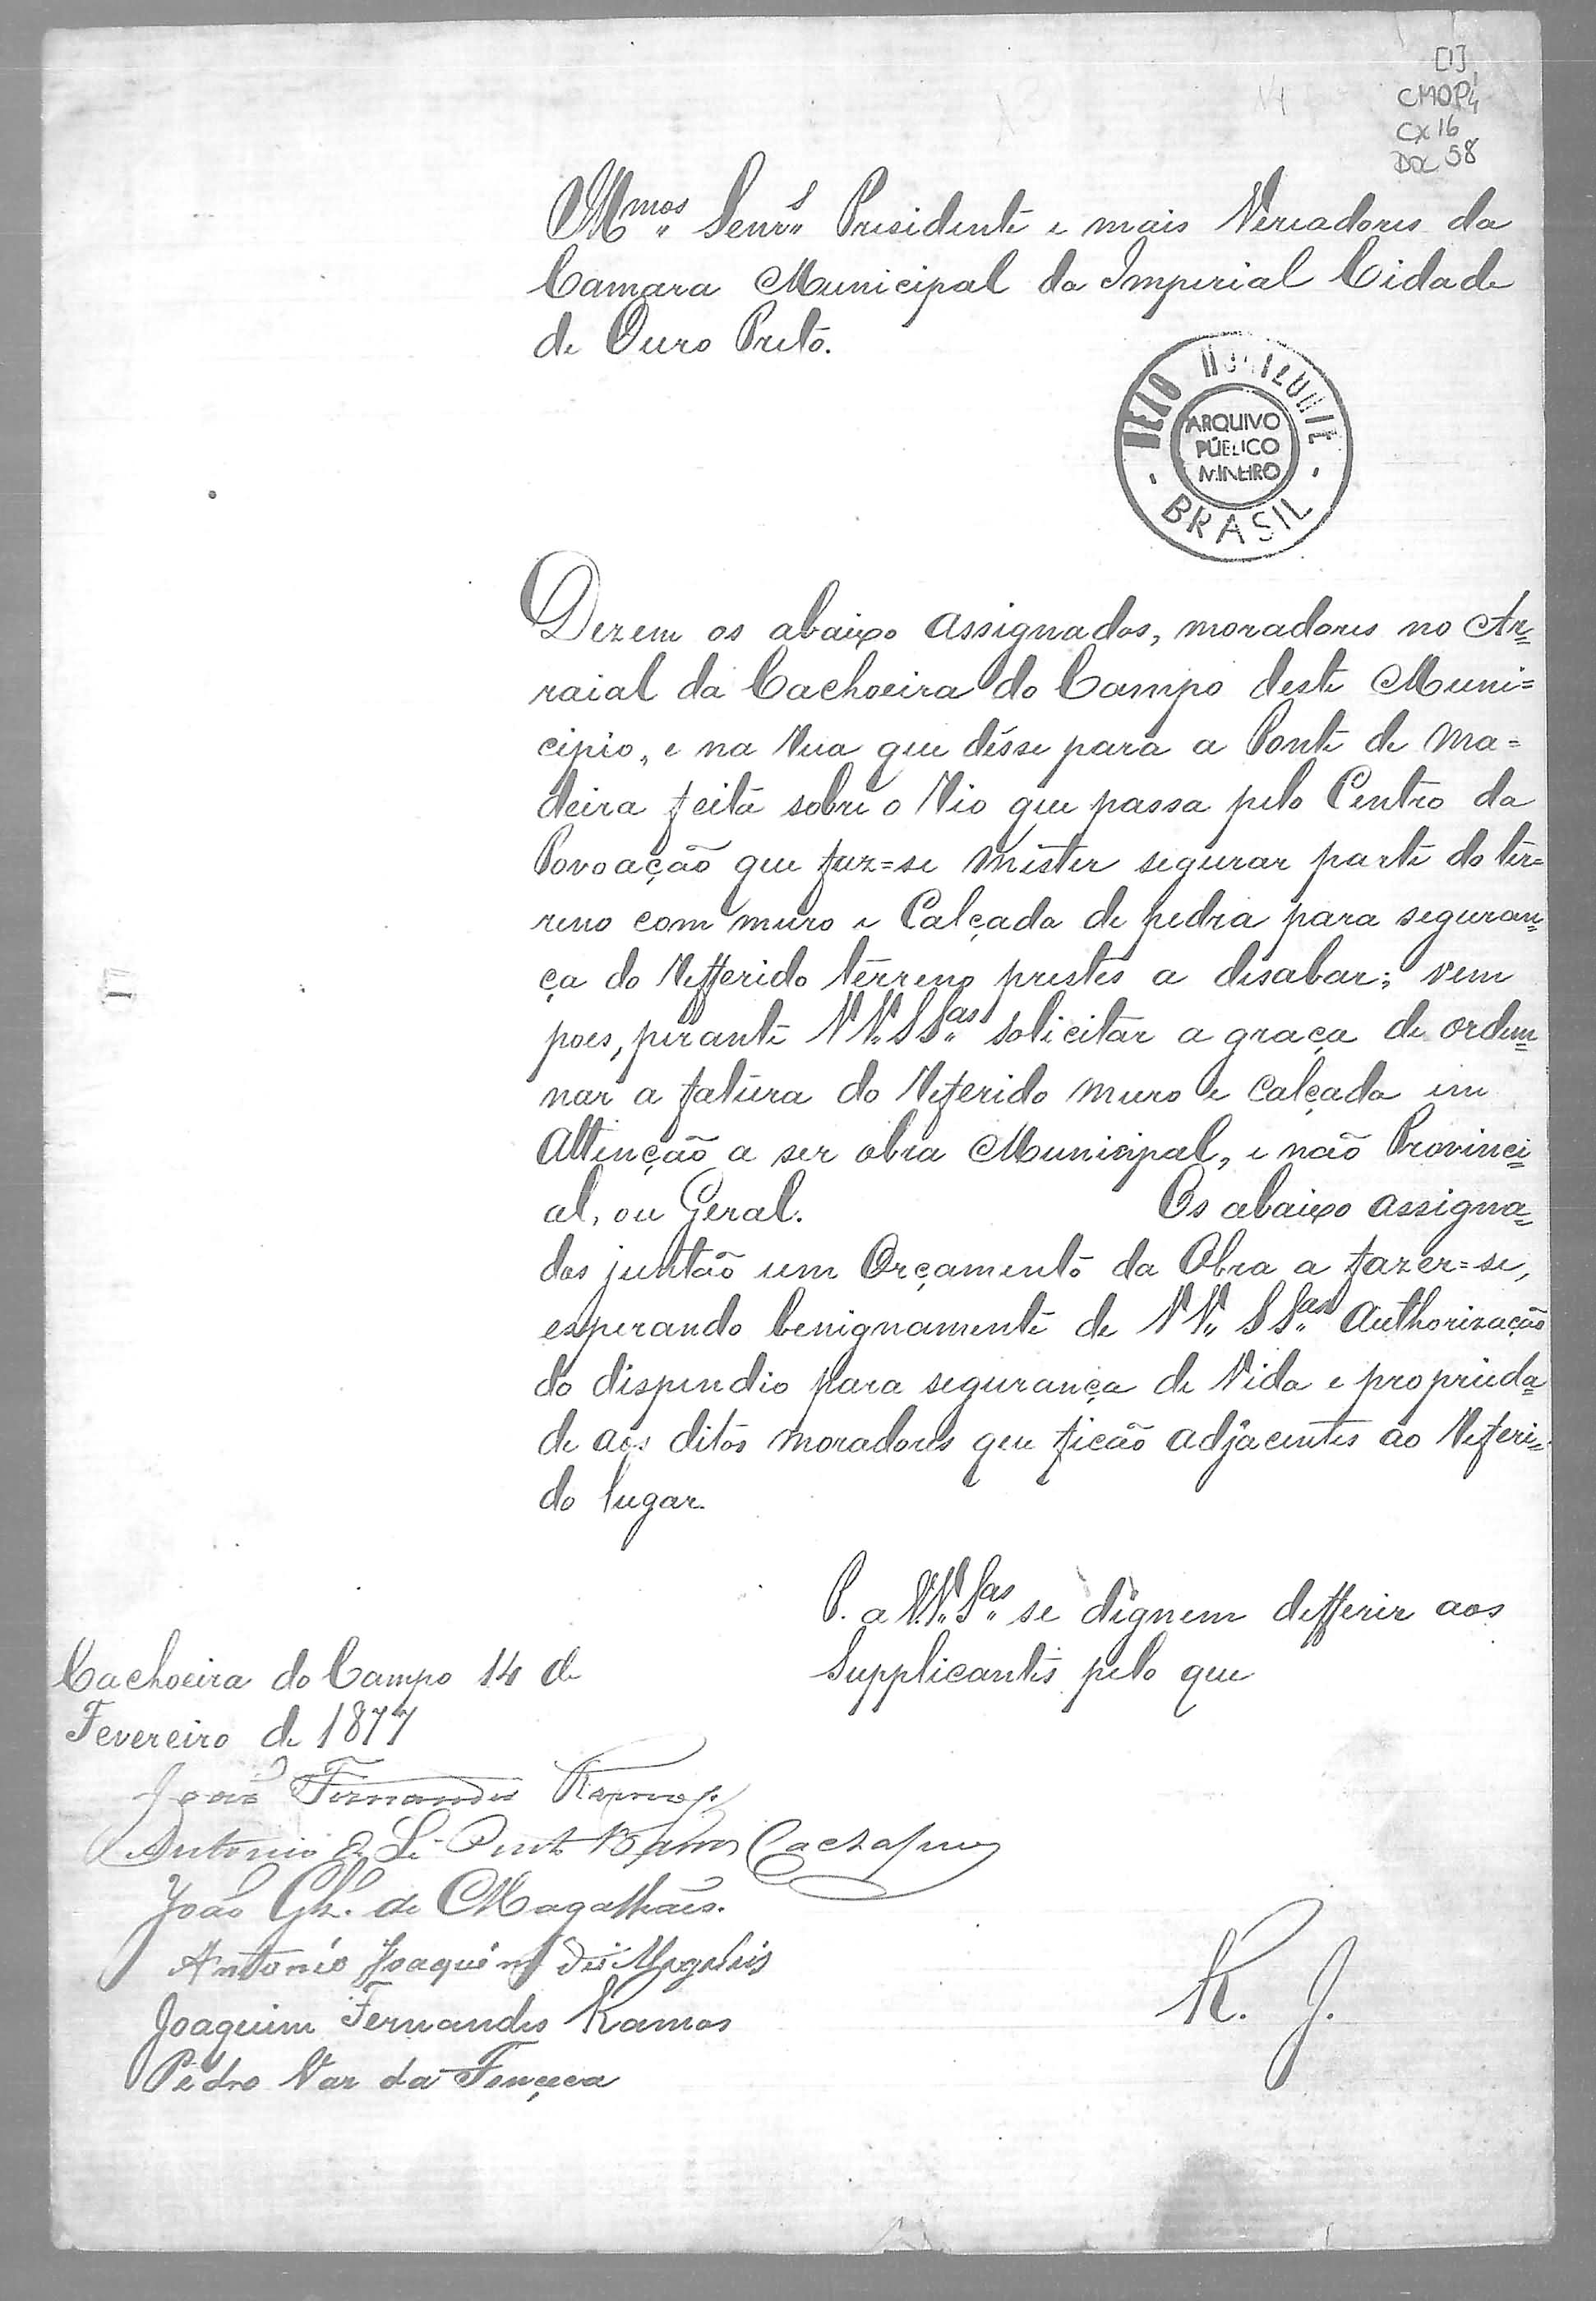 [1]
CMOP 1/4
CX 16
DOC 58
Illmos Senrs Presidente e mais Vereadores da
Camara Municipal da Imperial Cidade
de Ouro Preto.
BELO HORIZONTE
ARQUIVO
PÚBLICO
MINEIRO
BRASIL
Dizem os abaixo assignados, moradores no Ar=
raial da Cachoeira do Campo deste Muni=
cipio, e na Rua que désse para a Ponte de Ma=
deira feita sobre o Rio que passa pelo Centro da
Povoação que faz=se mister segurar parte do ter=
reno com muro e Calçada de pedra para seguran=
ça do Refferido térreno prestes a disabar; vem
pois, perante VV. SSas solicitar a graça de orden=
nar a fatura do Referido muro e Calçada em
Attenção a ser obra Municipal, e não Provinci=
al, ou Geral. Os abaixo assigna=
dos juntão um Orçamento da Obra a fazer=se,
esperando benignamente de VV. SSas Authorização
do dispendio para segurança de Vida e proprieda=
de aos ditos moradores que ficão adjacentes ao Referi=
do lugar.
P. a VV. Sas se dignem defferir aos
Supplicantes pelo que
Cachoeira do Campo 14 de
Fevereiro de 1877
João Fernandes Ramos
Antonio de
João Glz. de Magalhães.
Antonio Joaquim de Magalhis
Joaquim Fernandes Ramos
Pedro Vaz da Fonceca
R. J.